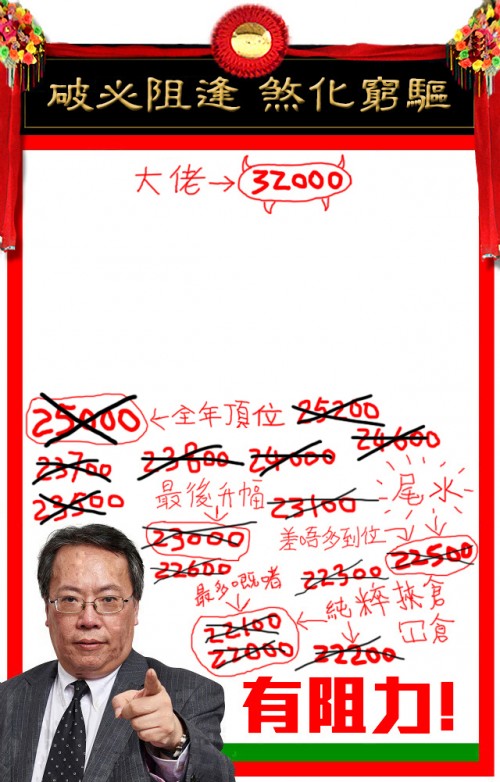 破必阻逢 煞化窮驅
大佬→32000
25000←全年頂位 25200
24600
23700 23800 24000
23500 最後升幅 23100 尾水
23000 差唔多到位→22500
22600 22300
最多嘅啫
22100 純粹挾倉
22000 冚倉
22200
有阻力!